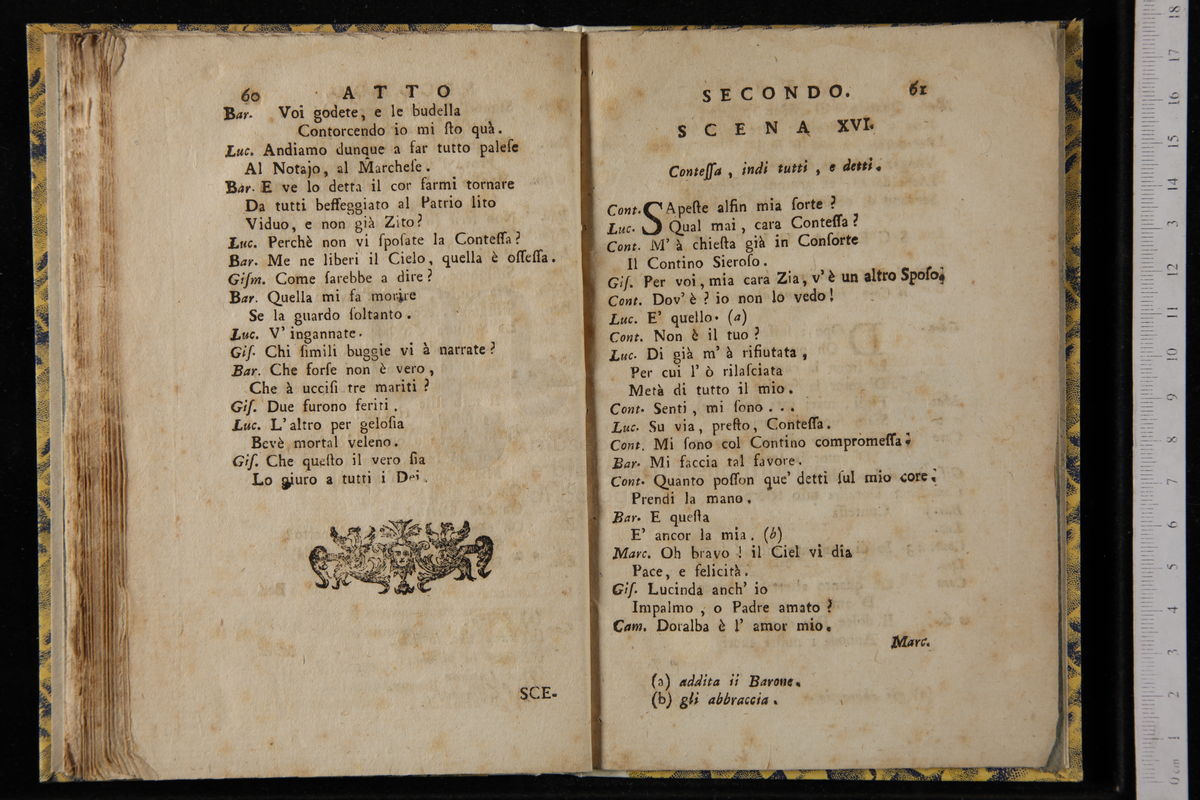 60 ATTO
Bar. Voi godete, e le budella
Contorcendo io mi ſto quà.
Luc. Andiamo dunque a far tutto paleſe
Al Notajo, al Marcheſe.
Bar. E ve lo detta il cor farmi tornare
Da tutti beffeggiato al Patrio lito
Viduo, e non già Zito?
Luc. Perchè non vi ſpoſate la Conteſſa?
Bar. Me ne liberi il Cielo, quella è oſſeſſa.
Giſm. Come ſarebbe a dire?
Bar. Quella mi fa morire
Se la guardo ſoltanto.
Luc. V' ingannate.
Giſ. Chi ſimili buggie vi à narrate?
Bar. Che forſe non è vero,
Che à ucciſi tre mariti?
Giſ. Due furono feriti.
Luc. L'altro per geloſia
Bevè mortal veleno.
Giſ. Che queſto il vero ſia
Lo giuro a tutti i Dei.
SCE-
SECONDO. 61
SCENA XVI.
Conteſſa, indi tutti, e detti.
Cont. SApeſte alfin mia ſorte?
Luc. Qual mai, cara Conteſſa?
Cont. M' à chieſta già in Conſorte
Il Contino Sieroſo.
Giſ. Per voi, mia cara Zia, v'è un altro Spoſo.
Cont. Dov' è? io non lo vedo!
Luc. E' quello. (a)
Cont. Non è il tuo?
Luc. Di già m' à rifiutata,
Per cui l' ò rilaſciata
Metà di tutto il mio.
Cont. Senti, mi ſono...
Luc. Su via, preſto, Conteſſa.
Cont. Mi ſono col Contino compromeſſa.
Bar. Mi faccia tal favore.
Cont. Quanto poſſon que' detti ſul mio core.
Prendi la mano.
Bar. E queſta
E' ancor la mia. (b)
Marc. Oh bravo! il Ciel vi dia
Pace, e felicità.
Giſ. Lucinda anch' io
Impalmo, o Padre amato?
Cam. Doralba è l' amor mio.
Marc.
(a) addita ii Barone.
(b) gli abbraccia.
0 cm 1 2 3 4 5 6 7 8 9 10 11 12 13 14 15 16 17 18